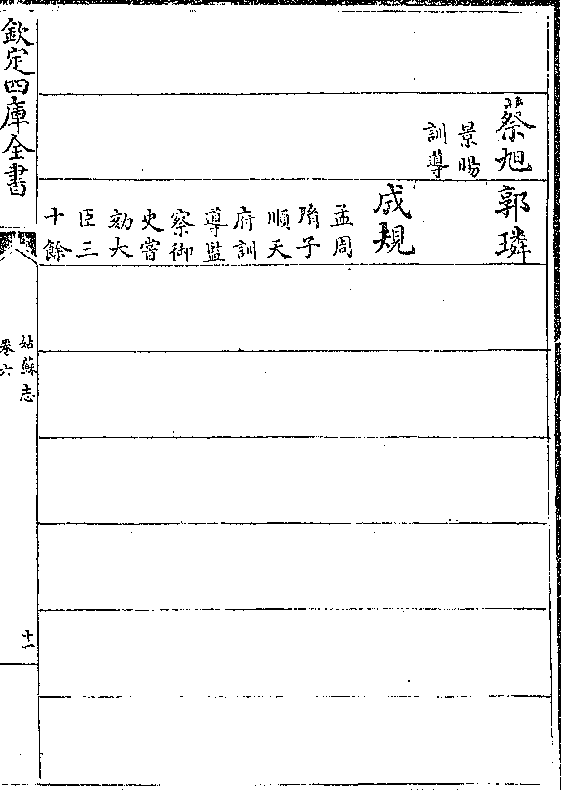 蔡旭
景暘
訓導
郭璘
成規
孟周
隋子
順天
府訓
導監
察御
史嘗
劾大
臣三
十餘
欽定四庫全書
姑蘇志
卷六
十一